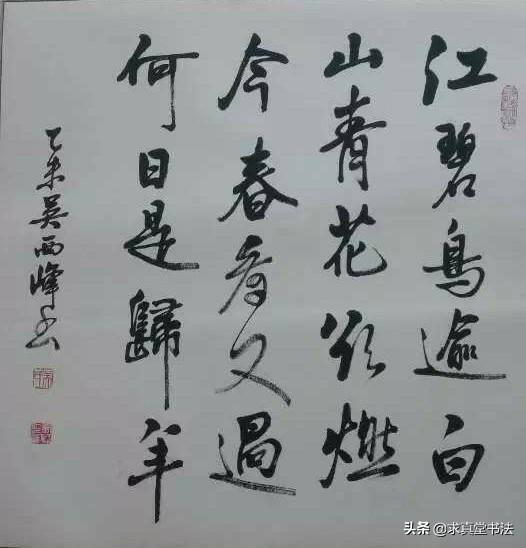 江碧鳥逾白
山青花欲燃
今春看又過
何日是歸年
乙未吴西峰书
头条 @求真堂书法